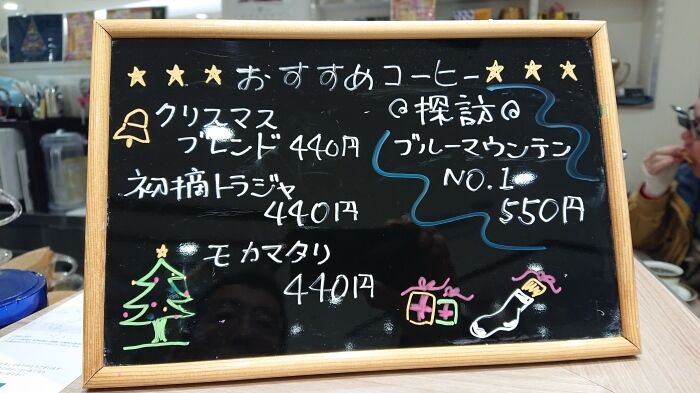 おすすめコーヒー
クリスマス
ブレンド 440円
初摘トラジャ
440円
モカマタリ
440円
@探訪@
ブルーマウンテン
NO.1
550円